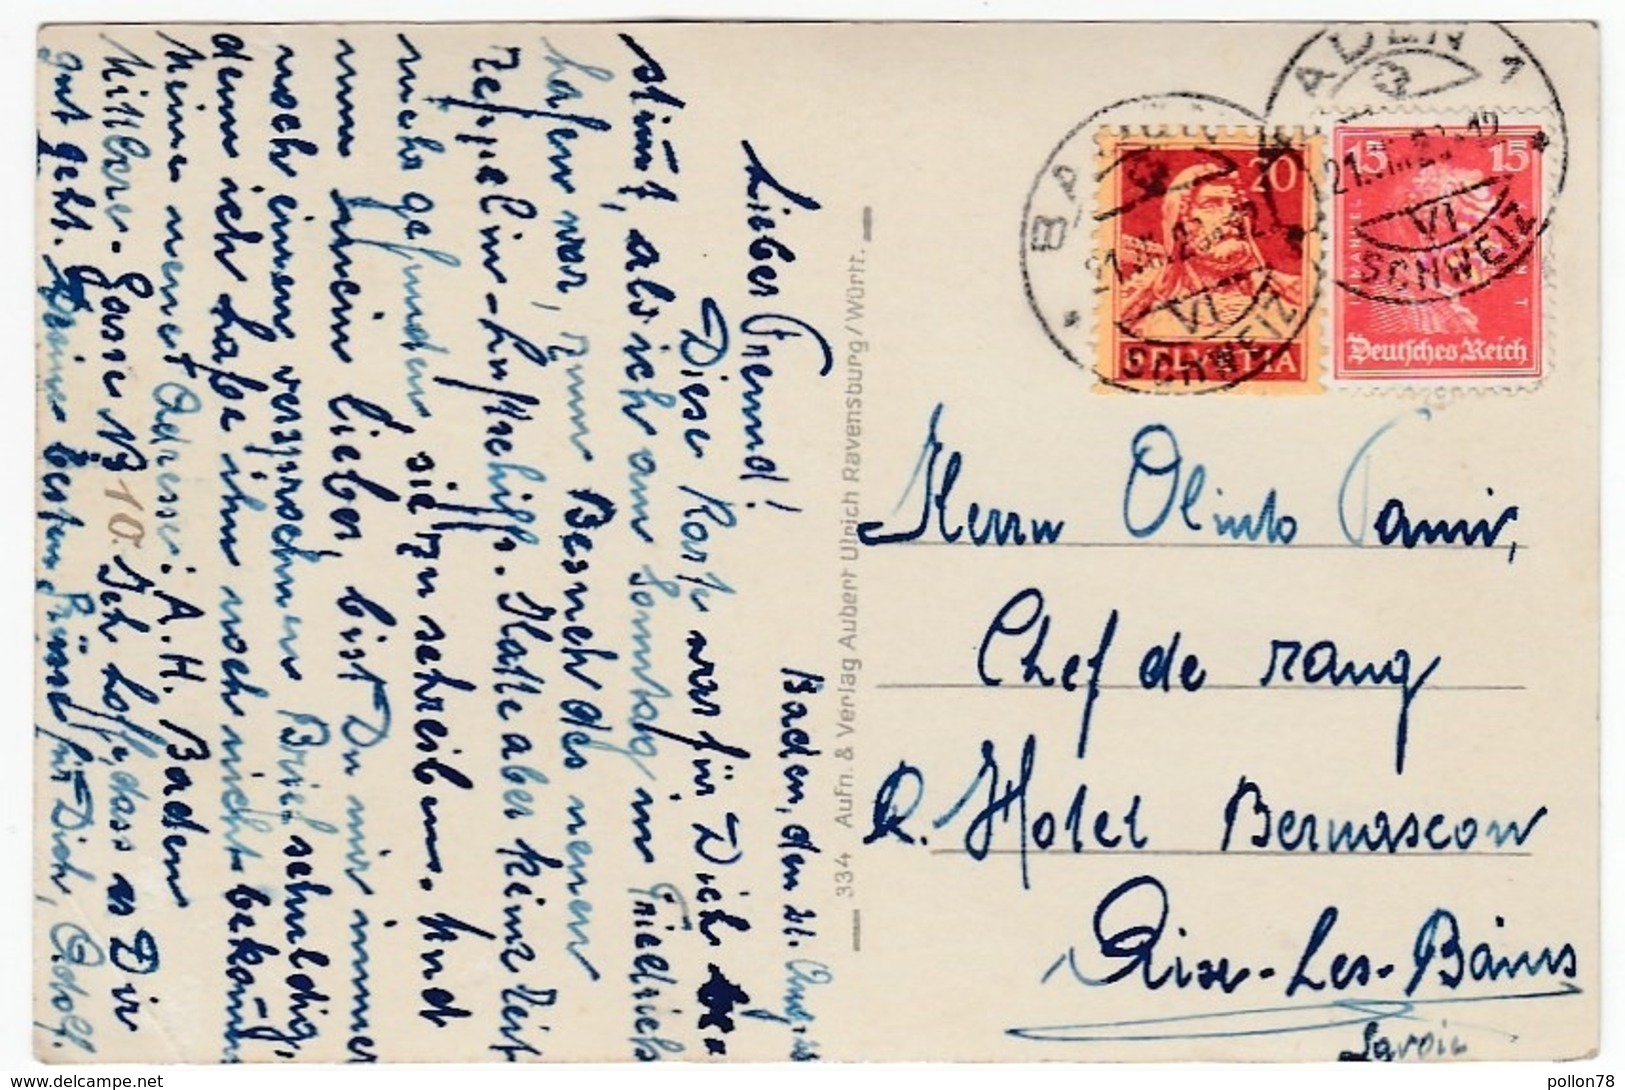 Baden, den 21. Aug. 28
Lieber Freund!
Diese Karte war für Dich be
stimmt, als ich am Sonntag in Friedrichs
hafen war, zum Besuch des neuen
Zeppelin-Luftschiffs. Hatte aber keine Zeit
mehr gefunden, sie zu schreiben. Und
nun mein lieber, bist Du mir immer
noch einen versprochnen Brief schuldig,
denn ich habe ihn noch nicht bekommen
Meine neue Adresse: A. H. Baden
Mittlerer-Gasse No 10. Ich hoffe, dass es Dir
gut geht. Meine besten Grüsse für Dich, Adolf.
334 Aufn. & Verlag Aubert Ulrich Ravensburg/Württ.
BADEN 1
21.VIII.28.-12
VI
SCHWEIZ
BADEN
21.VIII.28.-12
VI
SCHWEIZ
20
HELVETIA
15 15
IMMANUEL KANT
Deutsches Reich
Herrn Olinto Pamir,
Chef de rang
Hotel Bernascon
Aix-Les-Bains
Savoie
https://www.delcampe.net
pollon78